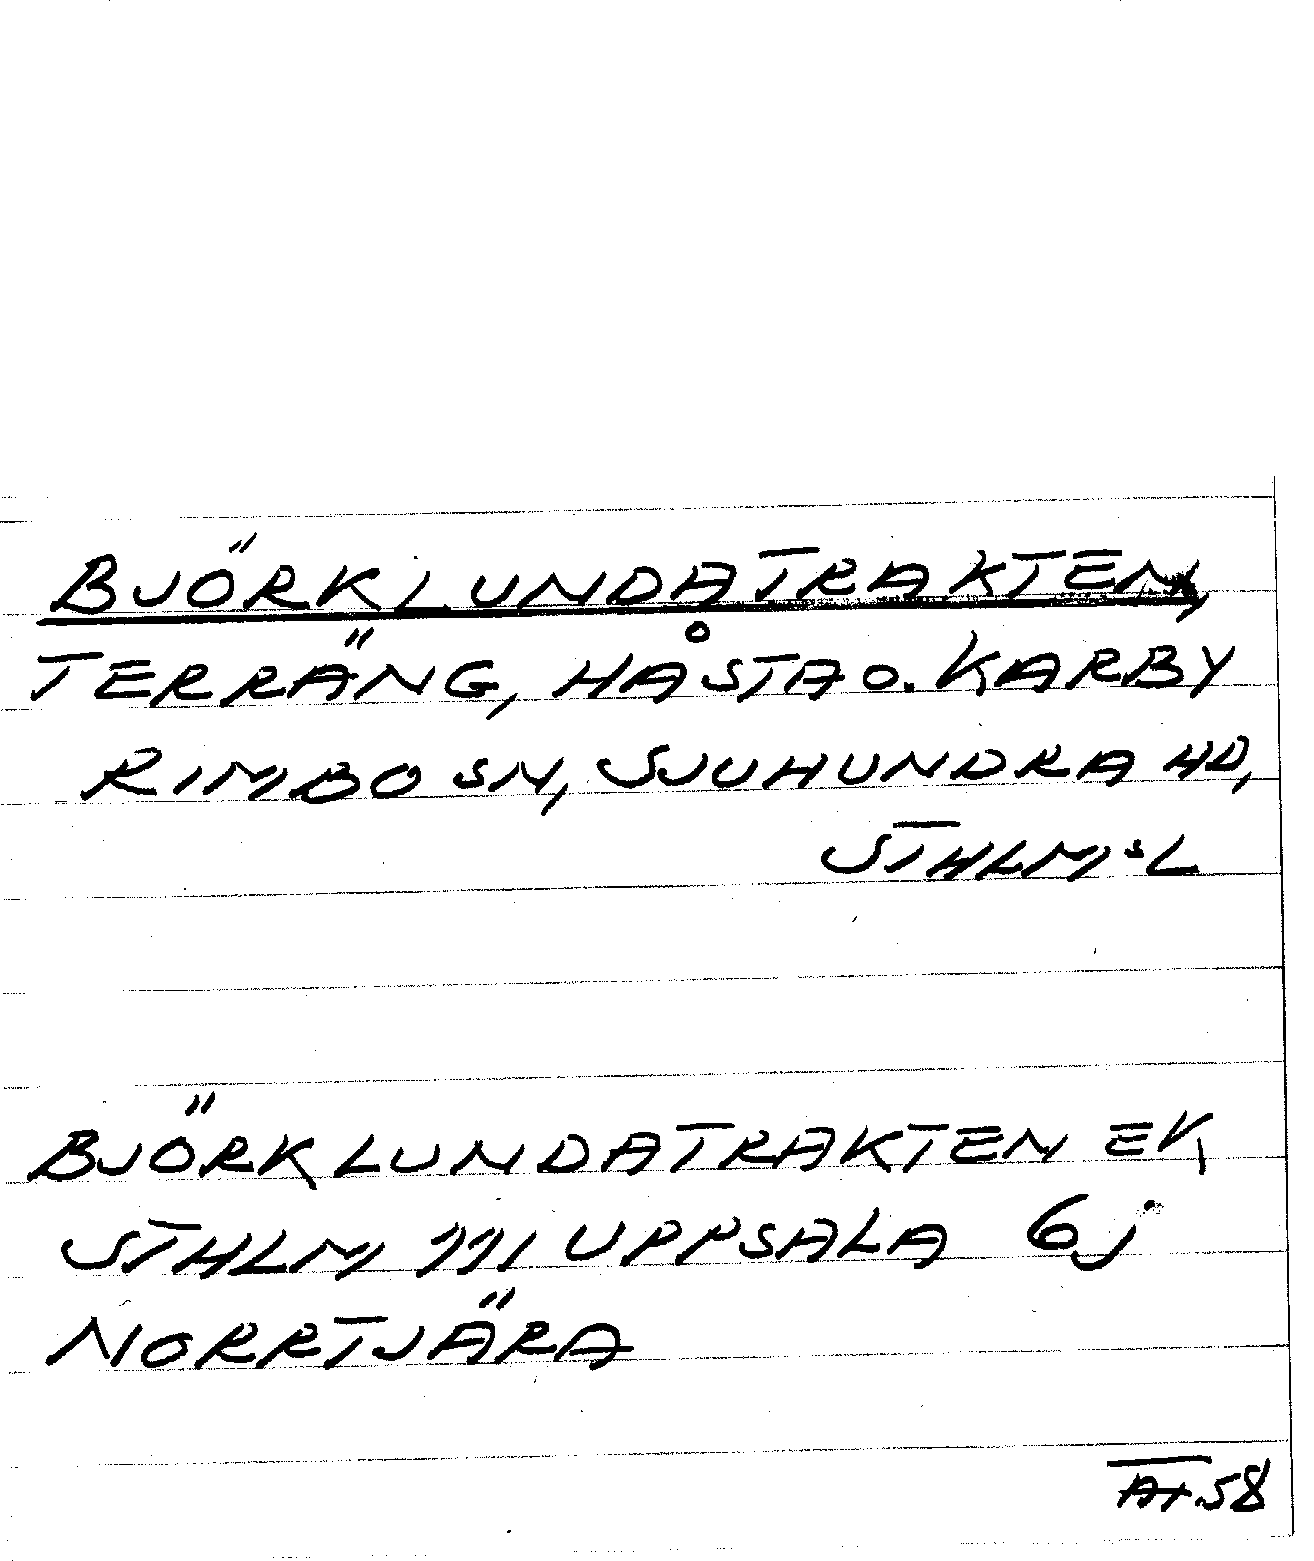 BJÖRKLUNDATRAKTEN,
TERRÄNG, HÅSTA O. KARBY
RIMBO SN, SJUHUNDRA HD,
STHLMS L
BJÖRKLUNDATRAKTEN EK
STHLM 111 UPPSALA 6j
NORRTJÄRA
58